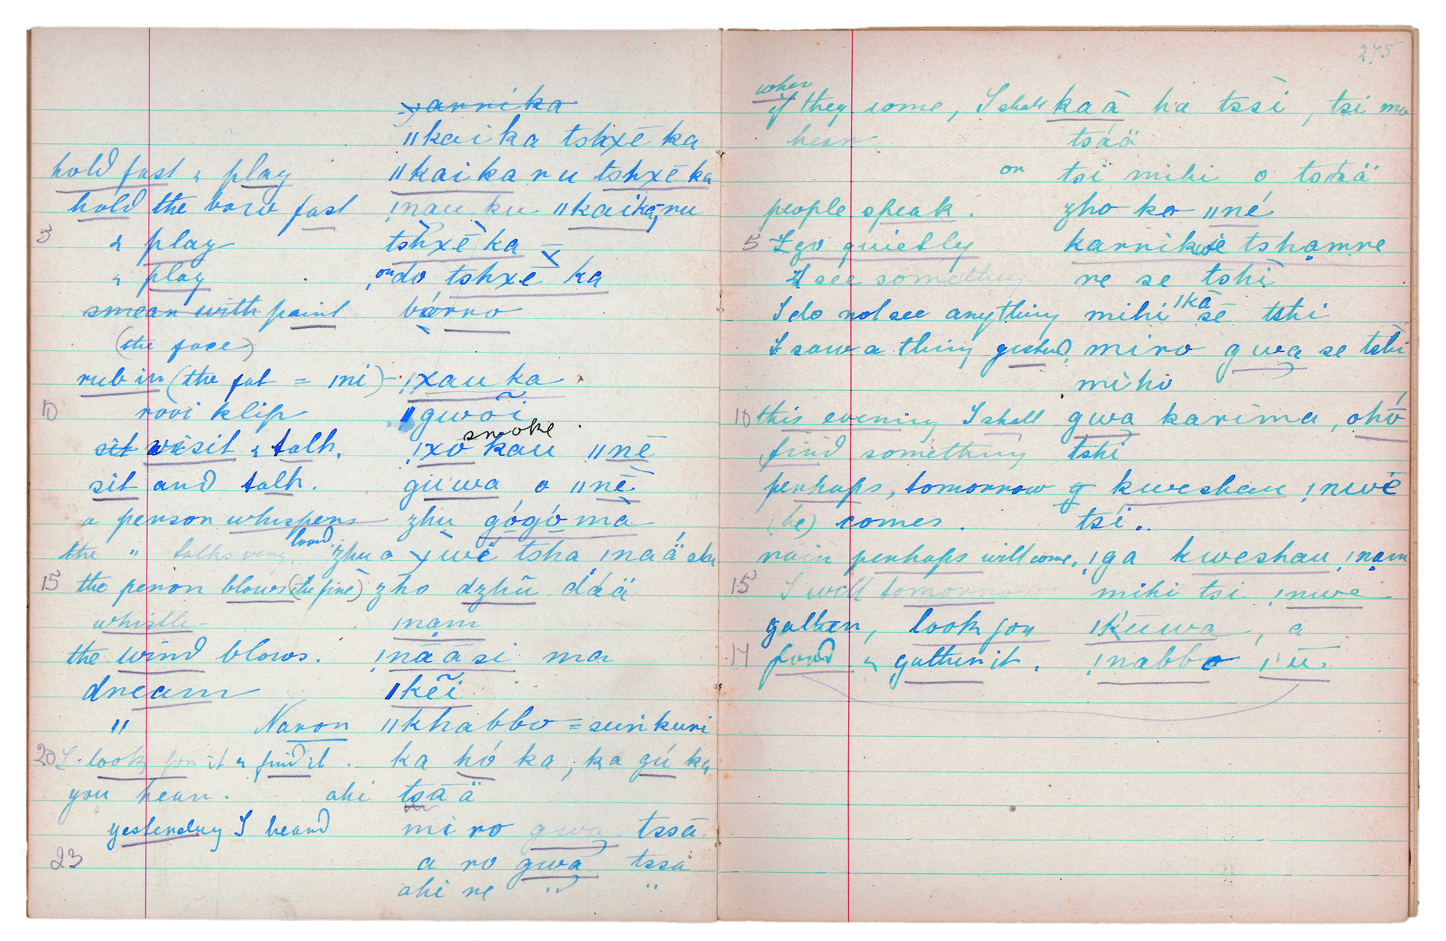 arrika
ǁkaika tshxē ka
hold fast & play ǁkaika ru tshxē ka
hold the bow fast ǃnau ku ǁkaikā, ru
5 & play tshxē ka
& play or do tshxē ka
smear with paint bórro
(the face)
rub in (the fat = ǀni) - ǃxau ka
10 rooi klip ǁgwõi
smoke
sit visit & talk. ǃxo kau ǁnē
sit and talk. gúwa o ǁnē
a person whispers zhu gógó ma
the " talks very loud zhu o
15 the person blows (the fire) zho dzhū dáä
whistle ǃnam
the wind blows. ǃnāāsi ma
dream ǀkẽi
" Naron ǁkhabbo = sun kuri
20 I look for it & find it. ka hó ka, ka gú ka
you hear. ahi tsāä
yesterday I heard mi ro gwa tssā
23 a ro gwa tssa
ahi re " "
275
when
if they come, I shall kaā ha tssi, tsi ma
hear. tsáä
or tsi mihi o tsāä
people speak. zho ko ǁné
5 I go quietly karrikwē tshamre
I see something re se tshi
ǀkā
I do not see anything mihi sē tshi
I saw a thing yesterd. miro gwa se tshi
mihi
10 this evening I shall gwa karima, ohō
find something tshi
perhaps, tomorrow kweshau ǃnwē
(he) comes. tsi..
rain perhaps will come, ǃga kweshau ǃnam
15 I will tomorrow mihi tsi ǃnwe
gather, look for ǀkūwa, a
17 food & gather it. ǃnabbo ǃū